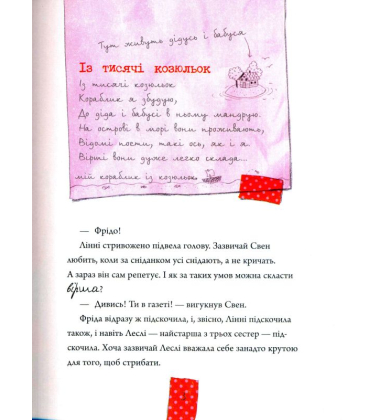 Тут живуть дідусь і бабуся
Із тисячі козюльок
Із тисячі козюльок
Кораблик я збудую,
До діда і бабусі в ньому мандрую.
На острові в морі вони проживають,
Відомі поети, такі ось, як і я
Вірші вони дуже легко склада...
мій кораблик із козюльок
— Фрідо!
Лінні стривожено підвела голову. Зазвичай Свен
любить, коли за сніданком усі снідають, а не кричать.
А зараз він сам репетує. І як за таких умов можна скласти
вірша?
— Дивись! Ти в газеті! — вигукнув Свен.
Фріда відразу ж підскочила, і, звісно, Лінні підскочила
також, і навіть Леслі — найстарша з трьох сестер — під-
скочила. Хоча зазвичай Леслі вважала себе занадто крутою
для того, щоб стрибати.